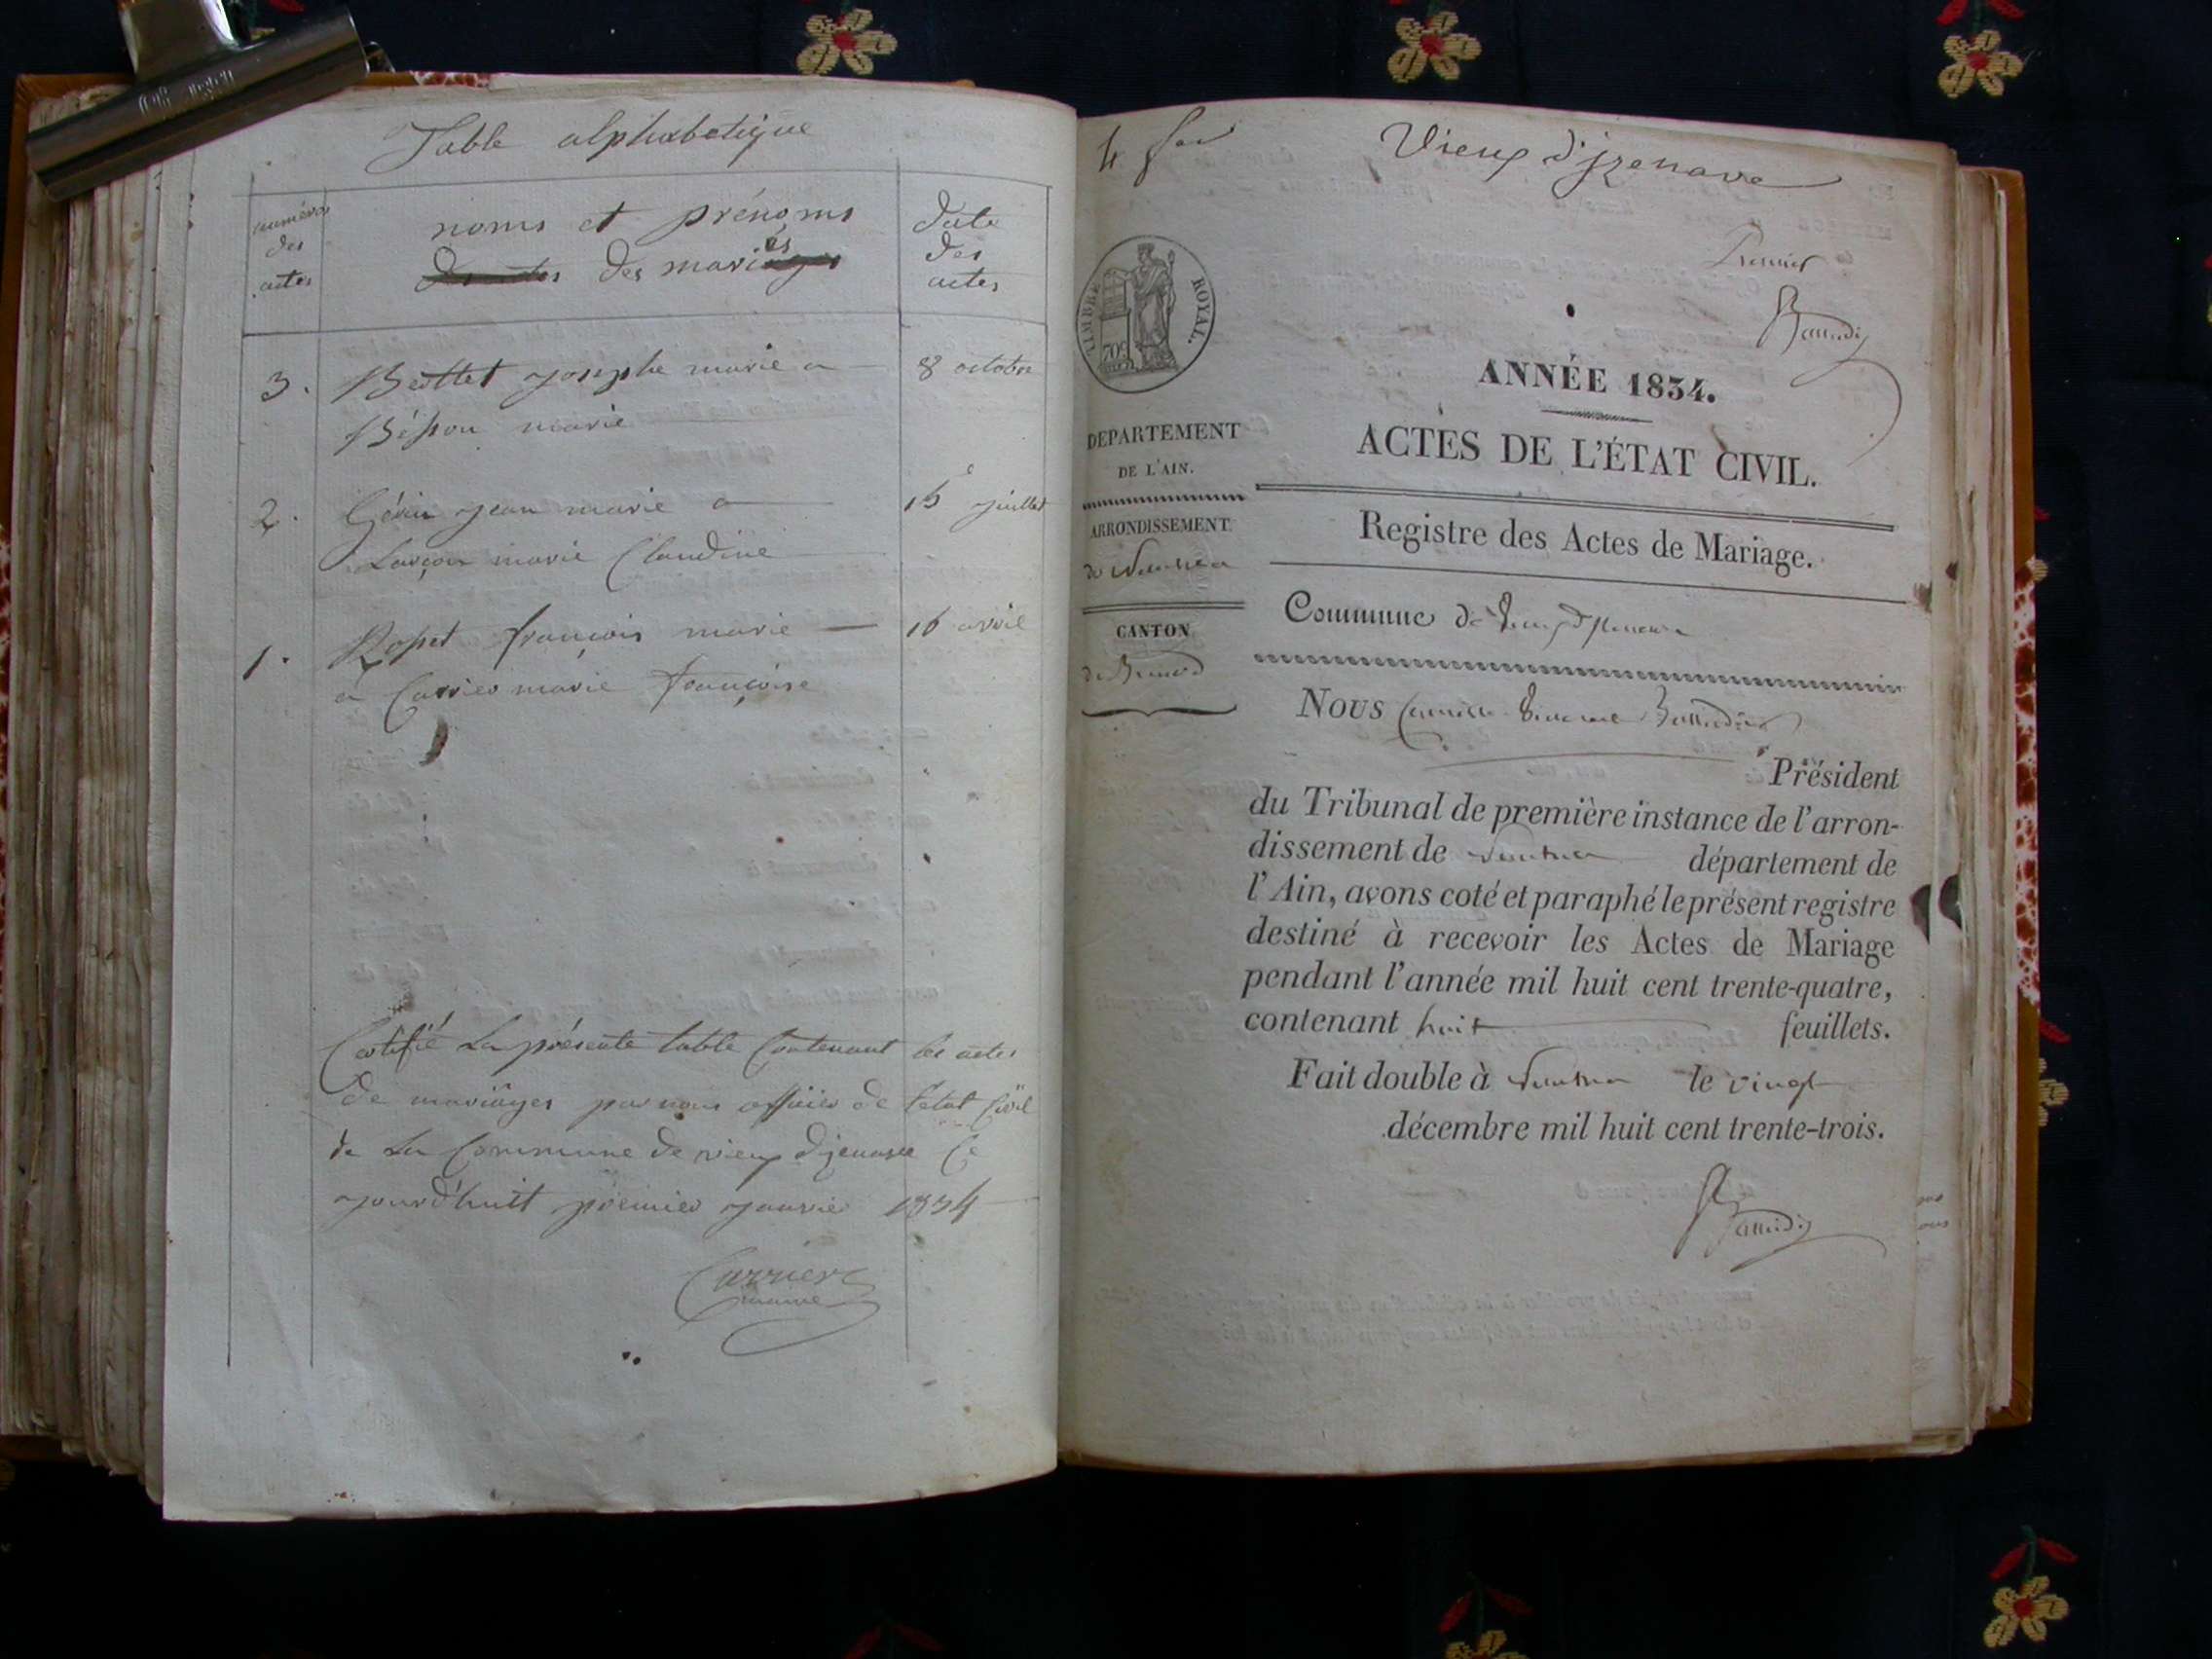 Table alphabetique
numéros
des
actes
noms et prénoms
des mariés
date
des
actes
3. Bertlet josephe marie a 8 octobre
Bésson marie
2. Gérin jean marie a 15 juillet
Larçon marie Claudine
1. Ropet françois marie 16 avril
a Carrier marie françoise
Certifié La présente table Contenant les actes
de mariages par nous officier de l'etat Civil
de La Commune de vieux d'jzenave Ce
jourd'huit premier janvier 1834
Carrier
maire
Vieux d'jzenave
Premier
TIMBRE ROYAL.
70c
ANNÉE 1834.
ACTES DE L'ÉTAT CIVIL.
DEPARTEMENT
DE L'AIN.
ARRONDISSEMENT
de Nantua
CANTON
de Brenod
Registre des Actes de Mariage.
Commune de Vieux d'Izenave
NOUS
Président
du Tribunal de première instance de l'arron-
dissement de Nantua département de
l'Ain, avons coté et paraphé le présent registre
destiné à recevoir les Actes de Mariage
pendant l'année mil huit cent trente-quatre,
contenant huit feuillets.
Fait double à Nantua le vingt
décembre mil huit cent trente-trois.